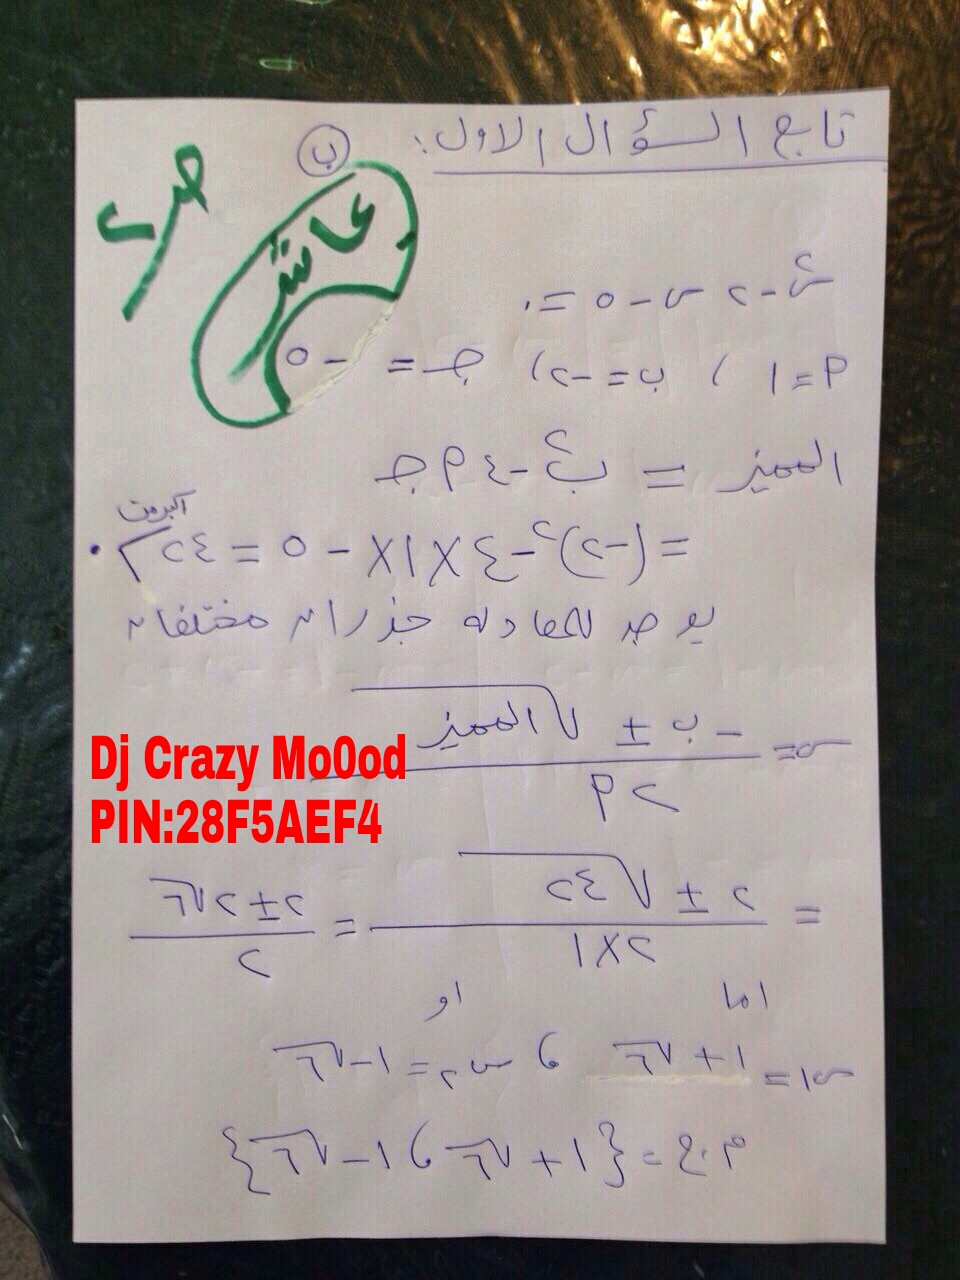 تابع السؤال الاول: (ب)
ص٢
عاشر
س٢ - ٢س - ٥ = ٠
P = ١ ، ب = -٢ ، جـ = -٥
المميز = ب٢ - ٤ P جـ
= (-٢)٢ - ٤ × ١ × -٥ = ٢٤ > ٠
أكبر من
يوجد للمعادلة جذران مختلفان
س = (-ب ± √المميز) / ٢P
Dj Crazy Mo0od
PIN:28F5AEF4
= (٢ ± √٢٤) / (٢×١) = (٢ ± ٢√٦) / ٢
اما او
س١ = ١ + √٦ و س٢ = ١ - √٦
م.ح = {١ + √٦ و ١ - √٦}